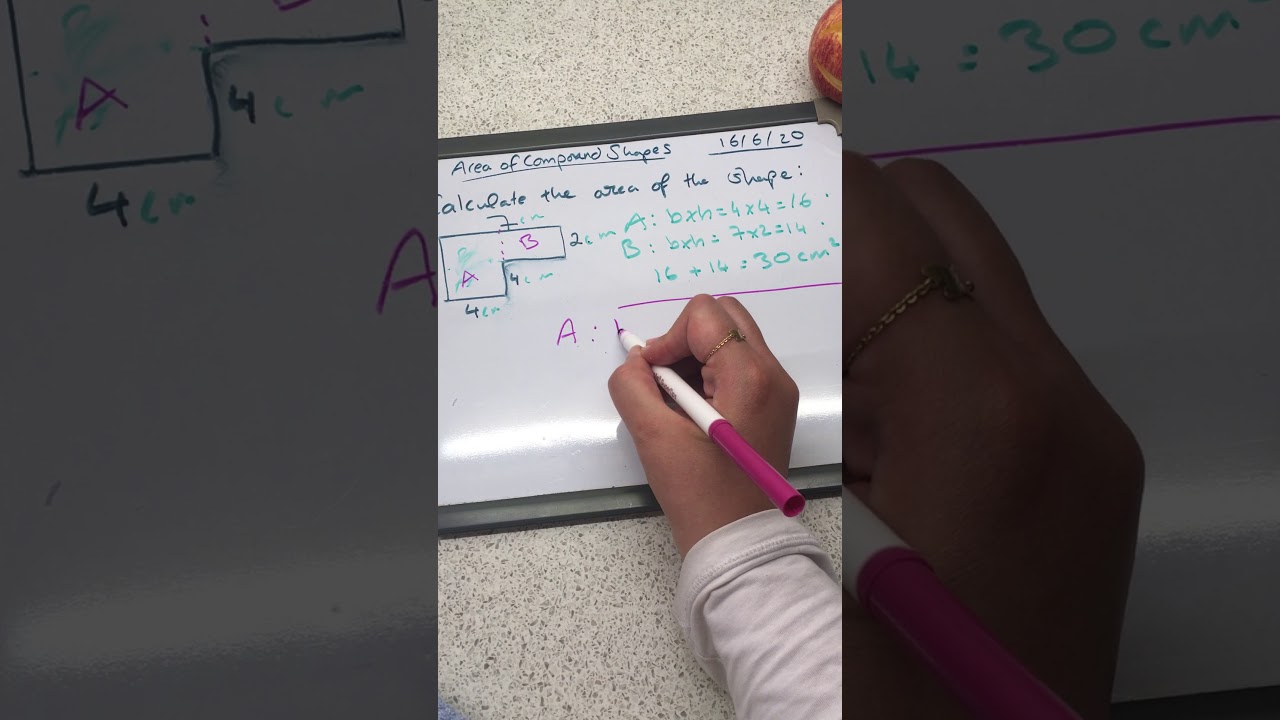 Area of Compound Shapes 16/6/20
Calculate the area of the shape:
7cm
B 2cm
A 4cm
4cm
A: bxh=4x4=16
B: bxh=7x2=14
16+14=30cm²
A: